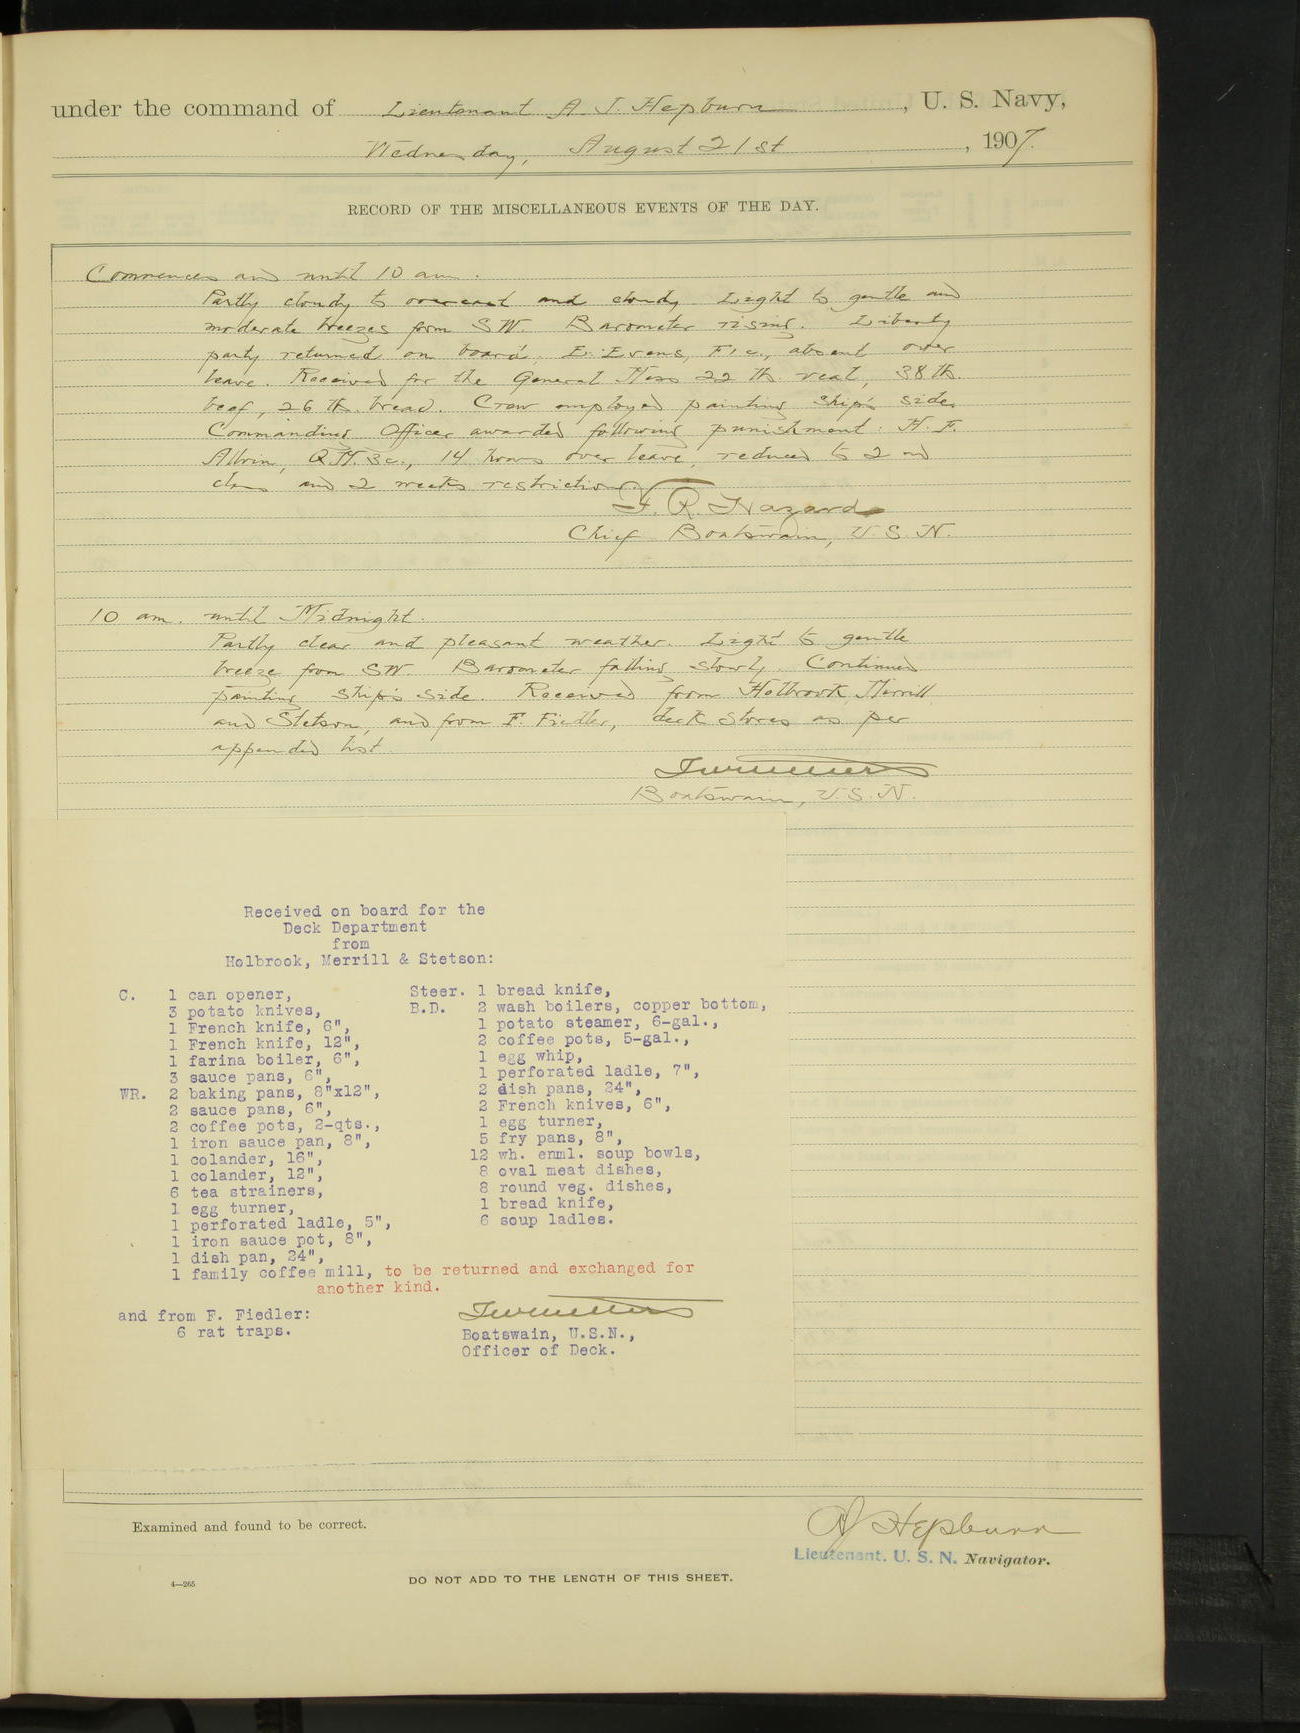 under the command of Lieutenant A. J. Hepburn, U. S. Navy,
Wednesday, August 21st, 1907.
RECORD OF THE MISCELLANEOUS EVENTS OF THE DAY.
Commences and until 10 am.
Partly cloudy to overcast and cloudy. Light to gentle and
moderate breezes from SW. Barometer rising. Liberty
party returned on board. E. Evens, F1c., absent over
leave. Received for the General Mess 22 lb veal, 38 lb.
beef, 26 lb. bread. Crew employed painting ship's side.
Commanding Officer awarded following punishment: H. F.
Albrin, QM.3c., 14 hours over leave, reduced to 2nd
class and 2 weeks restriction.
F. R. Hazard
Chief Boatswain, U. S. N.
10 am. until Midnight.
Partly clear and pleasant weather. Light to gentle
breeze from SW. Barometer falling slowly. Continued
painting ship's side. Received from Holbrook, Merrill
and Stetson, and from F. Fiedler, deck stores as per
appended list.
Boatswain, U. S. N.
Received on board for the
Deck Department
from
Holbrook, Merrill & Stetson:
C. 1 can opener,
3 potato knives,
1 French knife, 6",
1 French knife, 12",
1 farina boiler, 6",
3 sauce pans, 6",
WR. 2 baking pans, 8"x12",
2 sauce pans, 6",
2 coffee pots, 2-qts.,
1 iron sauce pan, 8",
1 colander, 16",
1 colander, 12",
6 tea strainers,
1 egg turner,
1 perforated ladle, 5",
1 iron sauce pot, 8",
1 dish pan, 24",
1 family coffee mill, to be returned and exchanged for
another kind.
Steer. 1 bread knife,
B.D. 2 wash boilers, copper bottom,
1 potato steamer, 6-gal.,
2 coffee pots, 5-gal.,
1 egg whip,
1 perforated ladle, 7",
2 dish pans, 24",
2 French knives, 6",
1 egg turner,
5 fry pans, 8",
12 wh. enml. soup bowls,
8 oval meat dishes,
8 round veg. dishes,
1 bread knife,
6 soup ladles.
and from F. Fiedler:
6 rat traps.
Boatswain, U.S.N.,
Officer of Deck.
Examined and found to be correct.
AJ Hepburn
Lieutenant. U. S. N. Navigator.
4—265
DO NOT ADD TO THE LENGTH OF THIS SHEET.